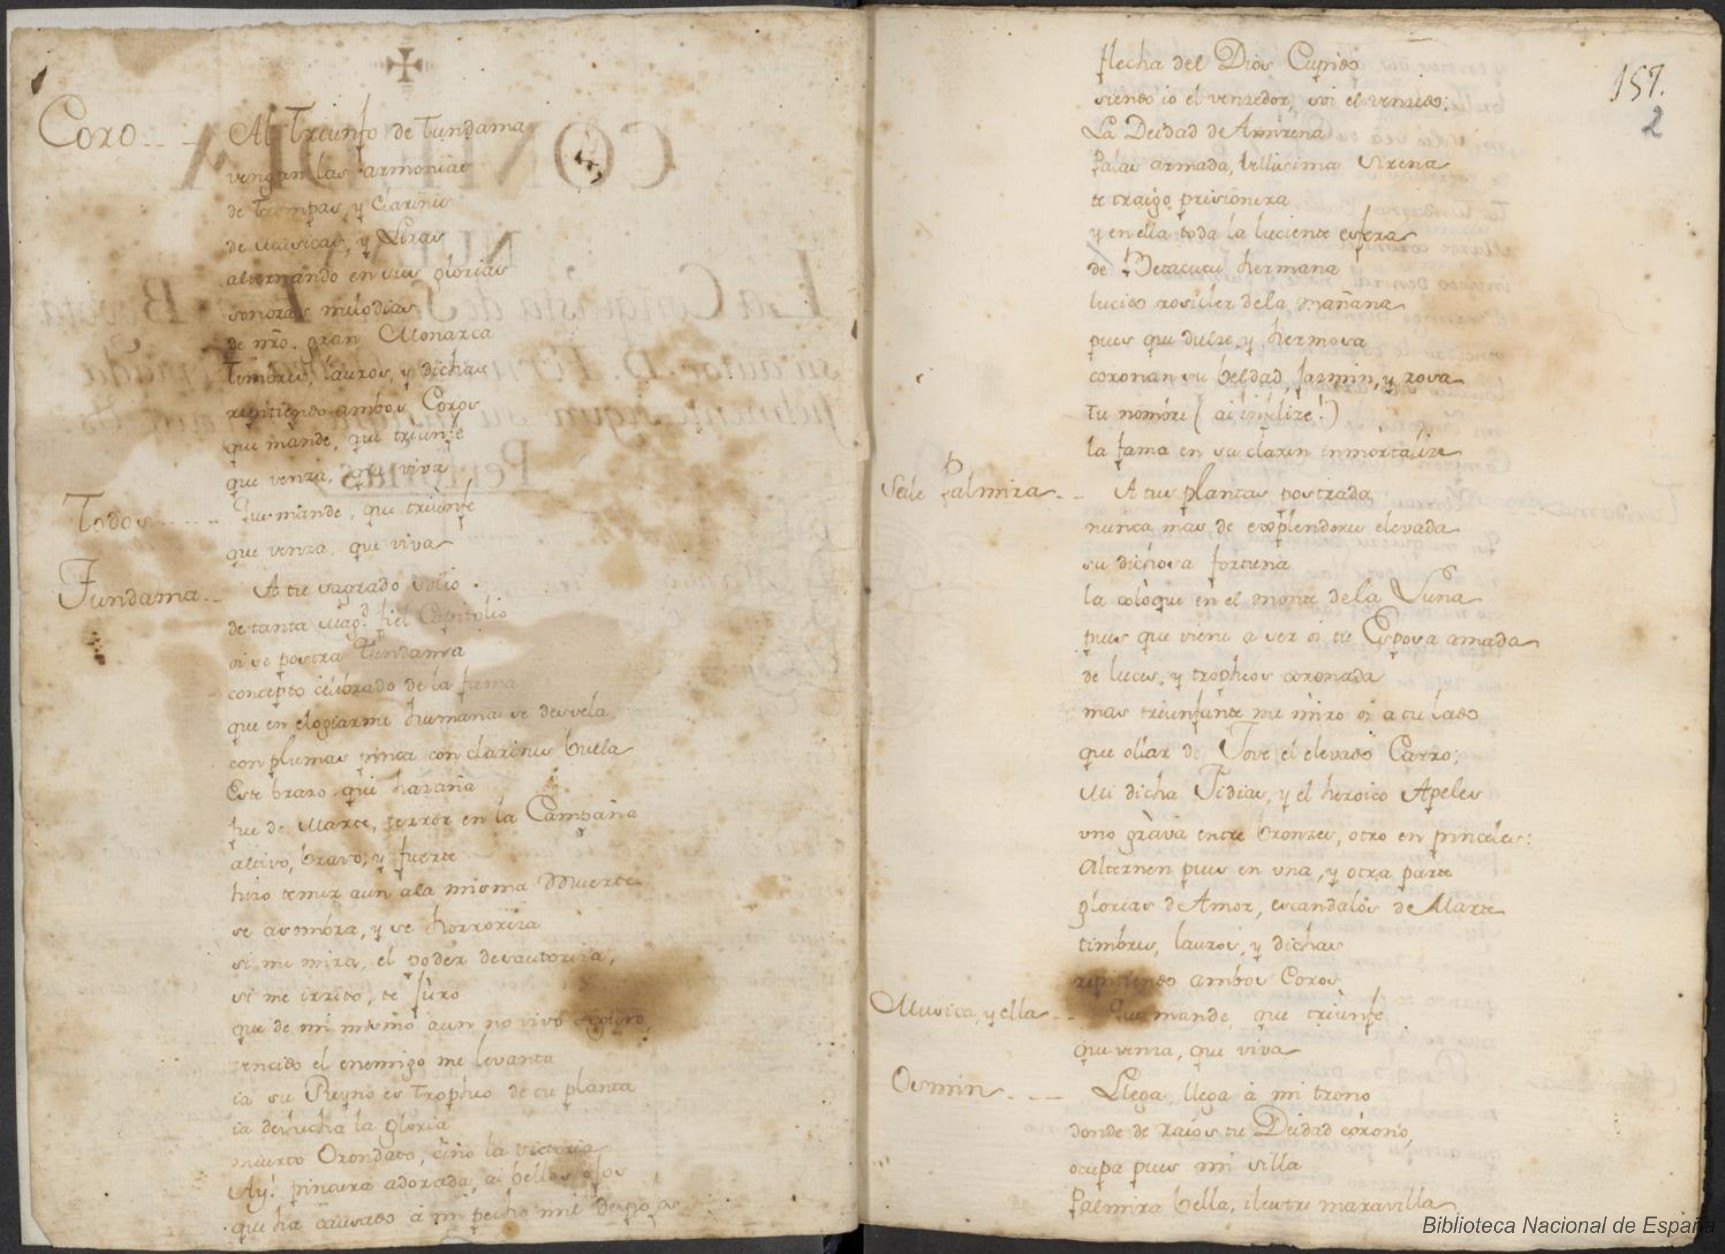 Coro... Al Triunfo de Tundama
vengan las armonias
de Trompas, y Clarines
de Musicas, y Liras
alternando en sus glorias
sonoras melodias
de nro. gran Monarca
timbres, lauros, y dichas
repitiendo ambos Coros
que mande, que triunfe
que venza, que viva
Todos..... Que mande, que triunfe
que venza, que viva
Tundama... A tu sagrado solio
de tanta Magd. fiel Capitolio
oi se postra Tundama
concepto celebrado de la fama
que en elogiarme humana se desvela
con plumas pinta con clarines buela
Este brazo que hazaña
fue de Marte, terror en la Campaña
altivo, bravo, y fuerte
hizo temer aun a la misma Muerte
se asombra, y se horroriza
si me mira, el poder desautoriza,
si me irrito, te juro
que de mi mismo aun no vivo seguro
vencido el enemigo me levanta
ia su Reyno es Tropheo de tu planta
ia desecha la gloria
muerto Orondato, ciño la victoria
Ay! pintura adorada, ai bellos ojos
que ha causado a mi pecho mil despojos
157.
2
flecha del Dios Cupido
siendo io el venzedor, soi el venzido:
La Deidad de Amirena
Palas armada, bellisima Sirena
te traigo prisionera
y en ella toda la luciente esfera
de Betacucu hermana
lucido rosicler de la mañana
pues que dulze, y hermosa
coronan su beldad, Jazmin, y rosa
Tu nombre (ai infelize!)
la fama en su clarin inmortalize
Sale Palmira... A tus plantas postrada
nunca mas de explendores elevada
su dichosa fortuna
la coloque en el monte de la Luna
pues que viene a ser oi tu Esposa amada
de luces, y tropheos coronada
mas triunfante me miro oi a tu lado
que ollar de Jove el elevado Carro;
Mi dicha Fidias, y el heroico Apeles
uno grava entre bronzes, otro en pinceles:
Alternen pues en una, y otra parte
glorias de Amor, escandalos de Marte
timbres, lauros, y dichas
repitiendo ambos Coros
Musica, y ella... Que mande, que triunfe
que venza, que viva
Osmin.... Llega, llega à mi trono
donde de raios tu Deidad corono,
ocupa pues mi silla
Palmira bella, ilustre maravilla
Biblioteca Nacional de España